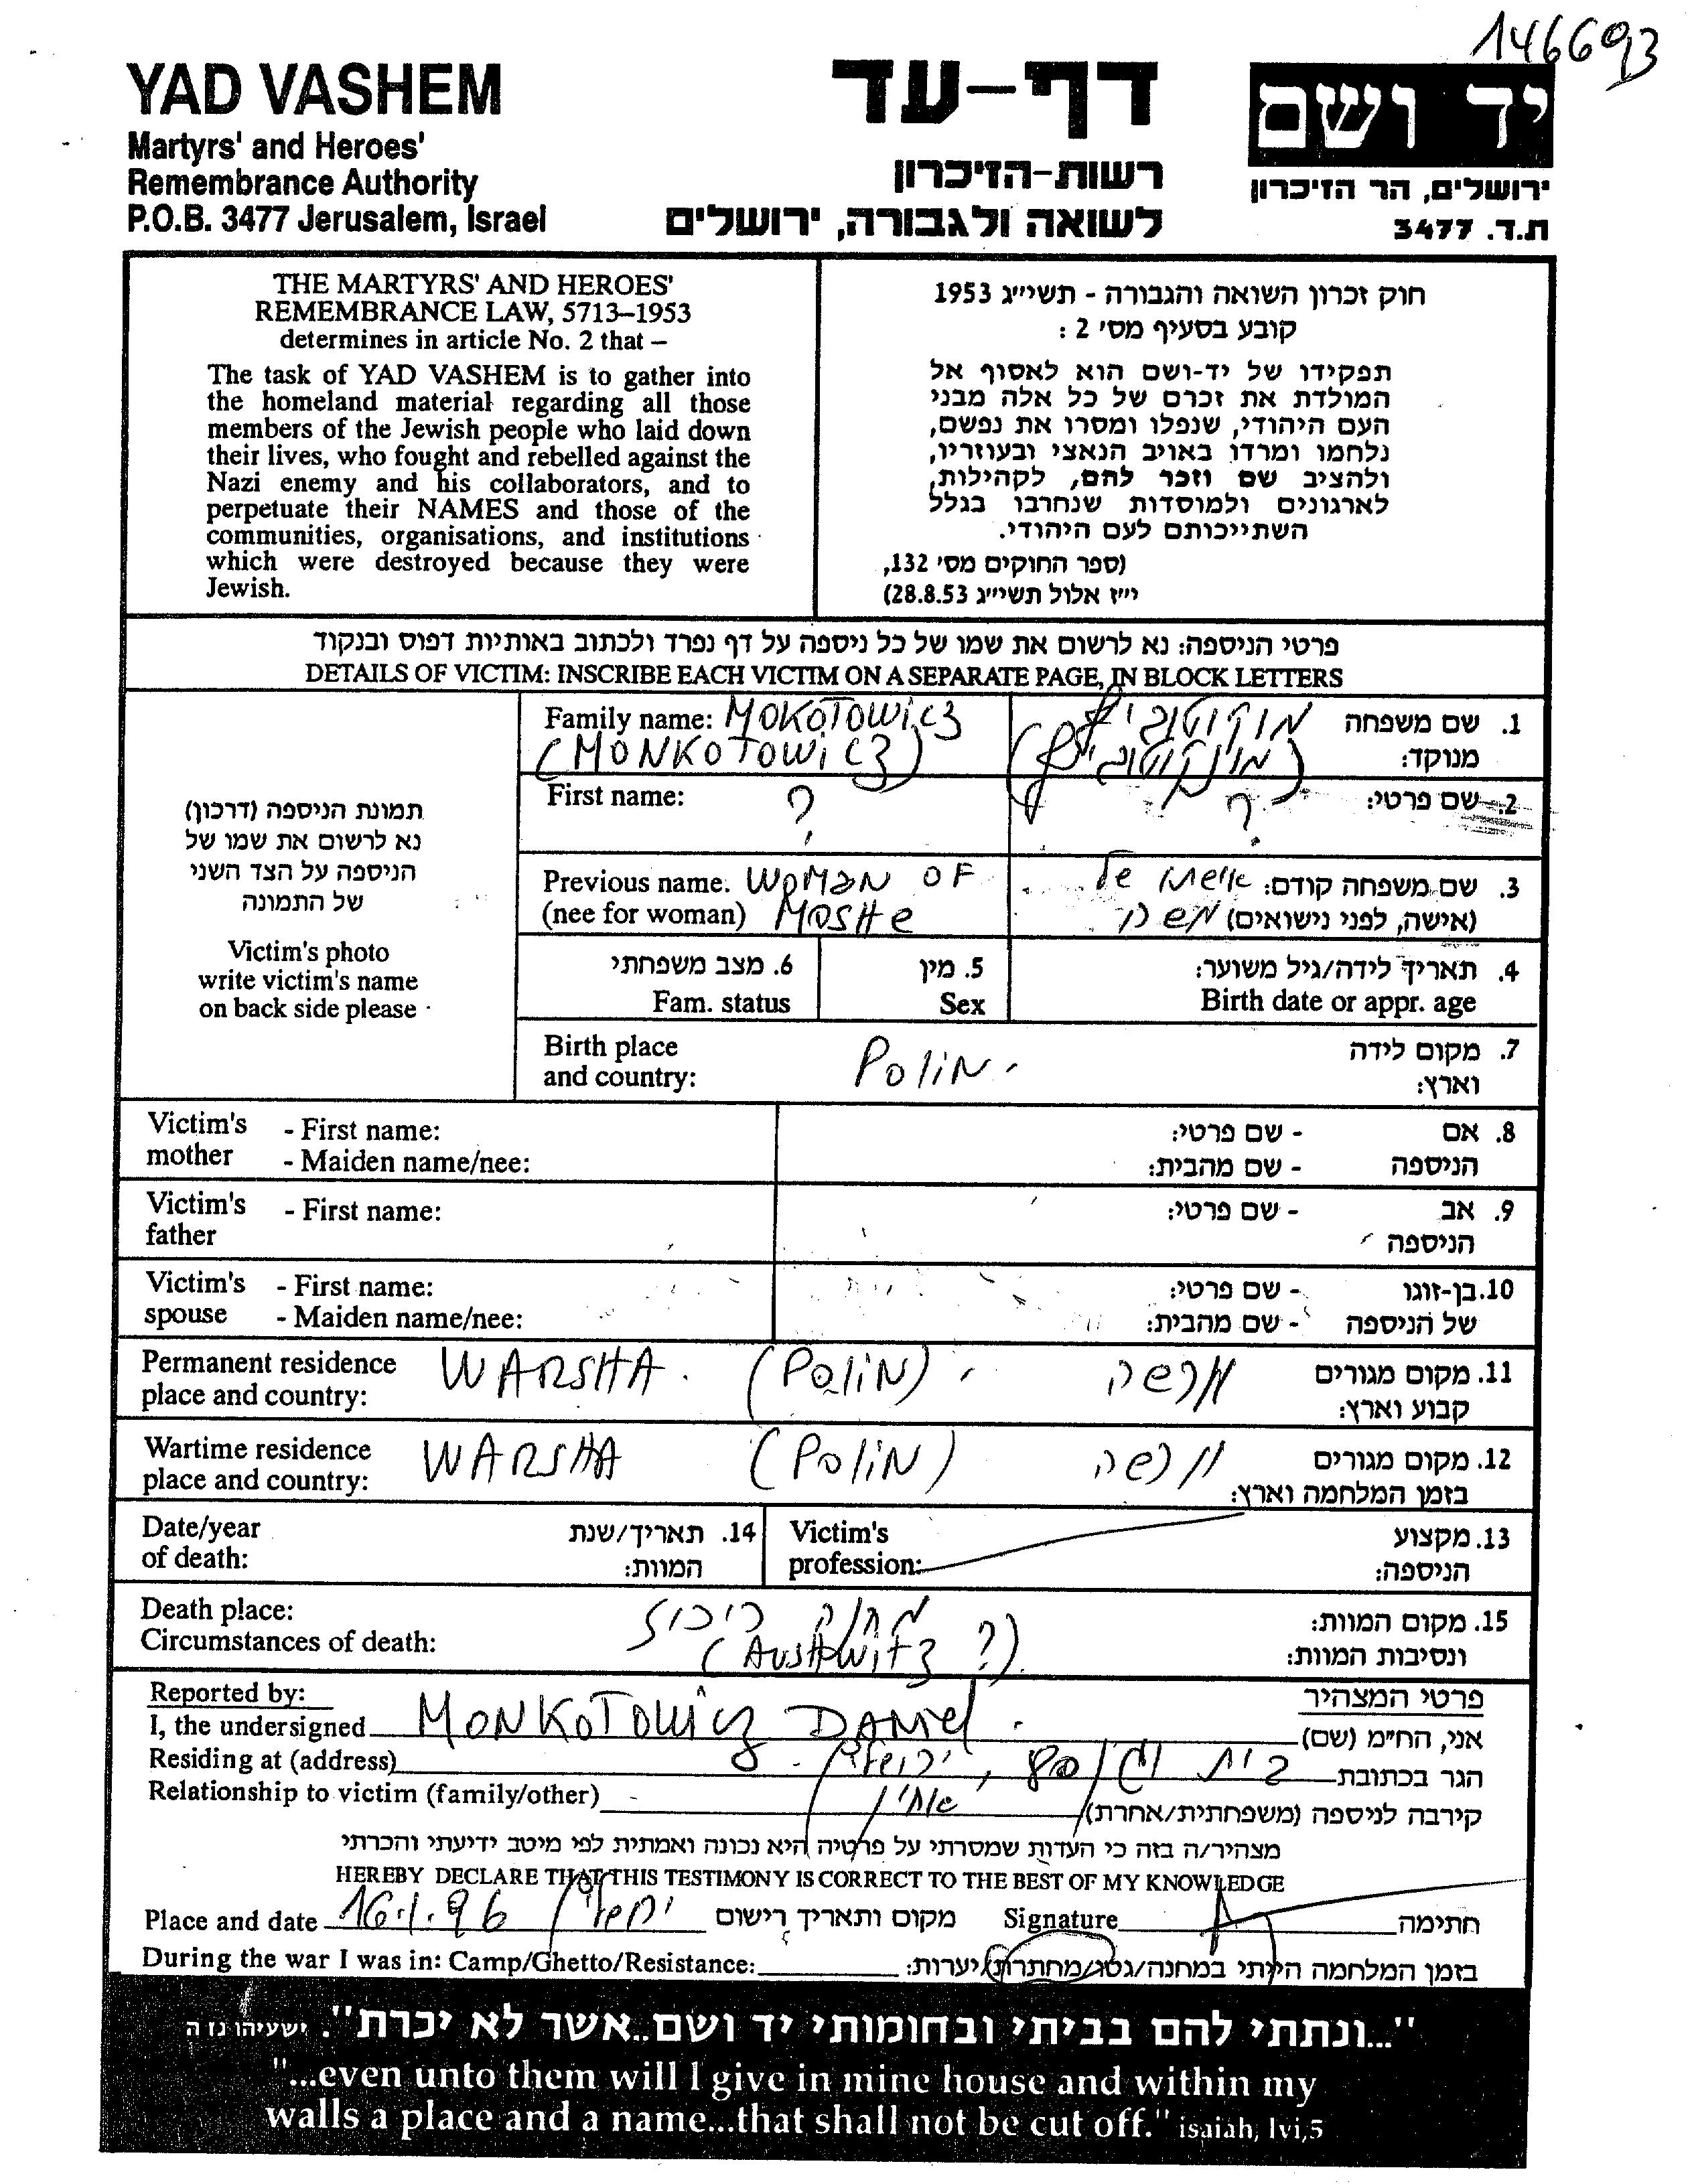 146693
YAD VASHEM
Martyrs' and Heroes'
Remembrance Authority
P.O.B. 3477 Jerusalem, Israel
דף-עד
רשות-הזיכרון
לשואה ולגבורה, ירושלים
יד ושם
ירושלים, הר הזיכרון
ת.ד. 3477
THE MARTYRS' AND HEROES'
REMEMBRANCE LAW, 5713–1953
determines in article No. 2 that –
The task of YAD VASHEM is to gather into
the homeland material regarding all those
members of the Jewish people who laid down
their lives, who fought and rebelled against the
Nazi enemy and his collaborators, and to
perpetuate their NAMES and those of the
communities, organisations, and institutions
which were destroyed because they were
Jewish.
חוק זכרון השואה והגבורה - תשי״ג 1953
קובע בסעיף מס׳ 2 :
תפקידו של יד-ושם הוא לאסוף אל
המולדת את זכרם של כל אלה מבני
העם היהודי, שנפלו ומסרו את נפשם,
נלחמו ומרדו באויב הנאצי ובעוזריו,
ולהציב שם וזכר להם, לקהילות,
לארגונים ולמוסדות שנחרבו בגלל
השתייכותם לעם היהודי.
(ספר החוקים מס׳ 132,
י״ז אלול תשי״ג 28.8.53)
פרטי הניספה: נא לרשום את שמו של כל ניספה על דף נפרד ולכתוב באותיות דפוס ובנקוד
DETAILS OF VICTIM: INSCRIBE EACH VICTIM ON A SEPARATE PAGE, IN BLOCK LETTERS
תמונת הניספה (דרכון)
נא לרשום את שמו של
הניספה על הצד השני
של התמונה
Victim's photo
write victim's name
on back side please
Family name: MOKOTOWICZ
(MONKOTOWICZ)
1. שם משפחה מוקוטוביץ
מנוקד: (מונקוטוביץ)
First name: ?
2. שם פרטי: ?
Previous name: WOMAN OF
(nee for woman) MOSHE
3. שם משפחה קודם: אישתו של
(אישה, לפני נישואים) משה
4. תאריך לידה/גיל משוער:
Birth date or appr. age
5. מין
Sex
6. מצב משפחתי
Fam. status
Birth place
and country: POLIN
7. מקום לידה
וארץ:
Victim's - First name:
mother - Maiden name/nee:
8. אם - שם פרטי:
הניספה - שם מהבית:
Victim's - First name:
father
9. אב - שם פרטי:
הניספה
Victim's - First name:
spouse - Maiden name/nee:
10. בן-זוגו - שם פרטי:
של הניספה - שם מהבית:
Permanent residence WARSHA. (POLIN)
place and country:
11. מקום מגורים ורשה
קבוע וארץ:
Wartime residence WARSHA (POLIN)
place and country:
12. מקום מגורים ורשה
בזמן המלחמה וארץ:
Date/year
of death:
14. תאריך/שנת
המוות:
Victim's
profession:
13. מקצוע
הניספה:
Death place:
Circumstances of death:
מחנה ריכוז
(AUSHWITZ ?)
15. מקום המוות:
ונסיבות המוות:
Reported by:
פרטי המצהיר
I, the undersigned MONKOTOWICZ DANIEL אני, הח״מ (שם)
Residing at (address) ירושלים הגר בכתובת בית
Relationship to victim (family/other) קירבה לניספה (משפחתית/אחרת)
מצהיר/ה בזה כי העדות שמסרתי על פרטיה היא נכונה ואמתית לפי מיטב ידיעתי והכרתי
HEREBY DECLARE THAT THIS TESTIMONY IS CORRECT TO THE BEST OF MY KNOWLEDGE
Place and date 16.1.96 מקום ותאריך רישום Signature חתימה
During the war I was in: Camp/Ghetto/Resistance: בזמן המלחמה הייתי במחנה/גטו/מחתרת/יערות:
"...ונתתי להם בביתי ובחומותי יד ושם..אשר לא יכרת". ישעיהו נו ה
"...even unto them will I give in mine house and within my
walls a place and a name...that shall not be cut off." isaiah, lvi,5